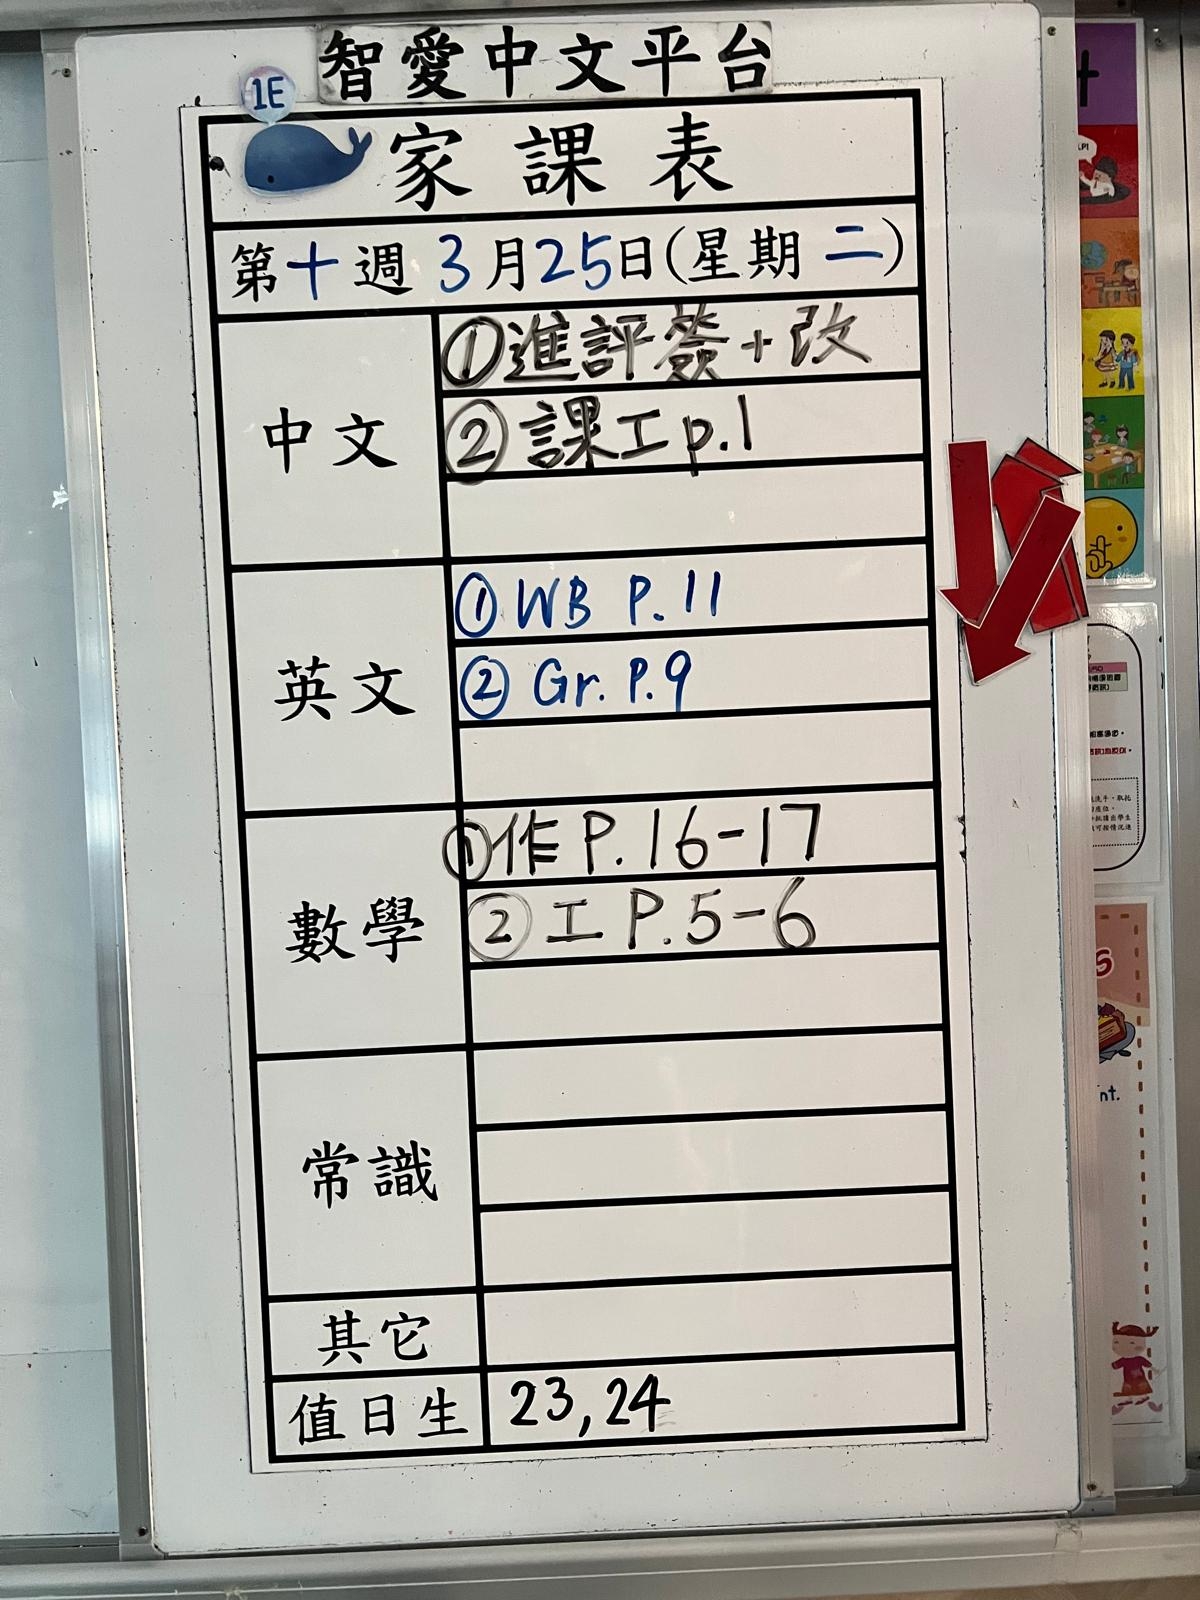 智愛中文平台
1E
家課表
第十週 3月25日(星期二)
中文
①進評簽+改
②課工p.1
英文
①WB P.11
②Gr. P.9
數學
①作P.16-17
②工P.5-6
常識
其它
值日生
23,24